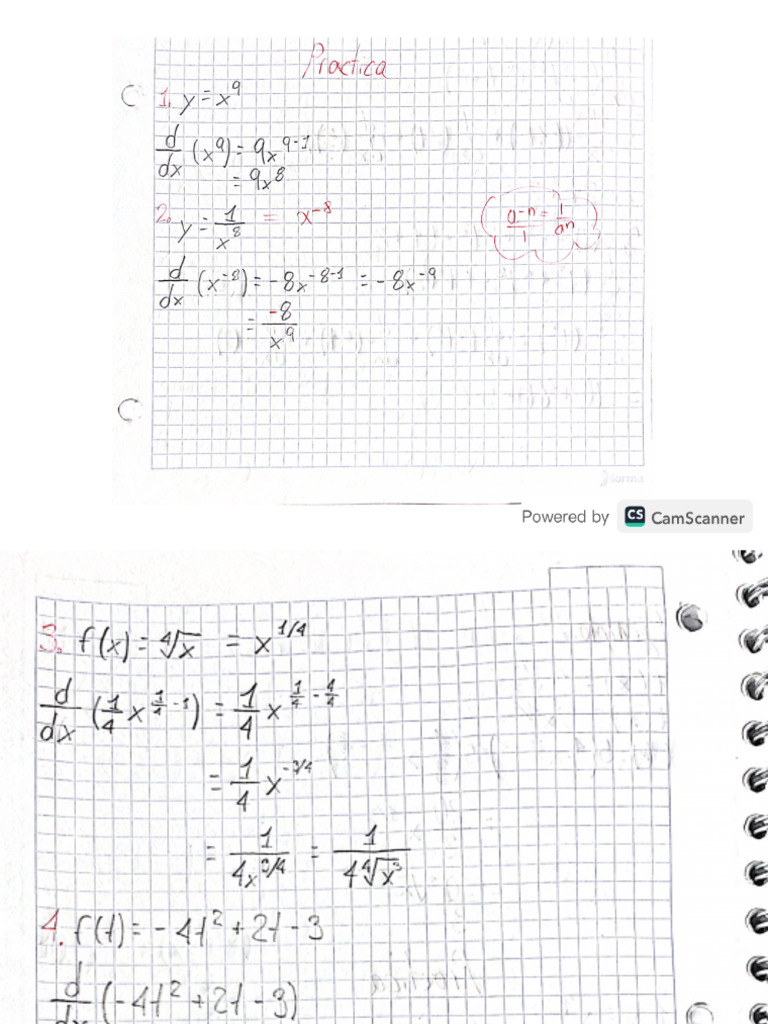 Practica
1. y = x^9
d/dx (x^9) = 9x^{9-1}
= 9x^8
2. y = 1/x^8 = x^{-8}
a^{-n}/1 = 1/a^n
d/dx (x^{-8}) = -8x^{-8-1} = -8x^{-9}
= -8/x^9
Norma
Powered by CS CamScanner
3. f(x) = ∜x = x^{1/4}
d/dx (1/4 x^{1/4 - 1}) = 1/4 x^{1/4 - 4/4}
= 1/4 x^{-3/4}
= 1/4x^{3/4} = 1/4∜x^3
4. f(t) = -4t^2 + 2t - 3
d/dx (-4t^2 + 2t - 3)